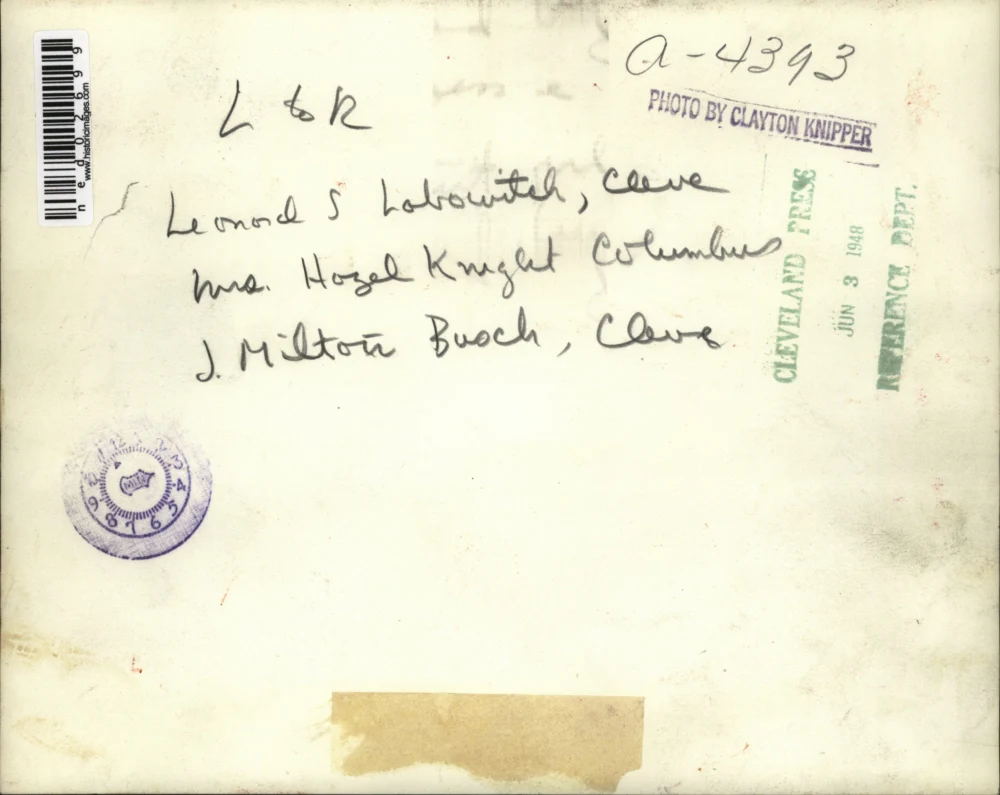 a-4393
PHOTO BY CLAYTON KNIPPER
L to R
Leonard S Labowitch, Cleve
Mrs. Hazel Knight Columbus
J. Milton Busch, Cleve
CLEVELAND PRESS
JUN 3 1948
REFERENCE DEPT.
www.historicimages.com
ned026999
12 1 2 3 4 5 6 7 8 9